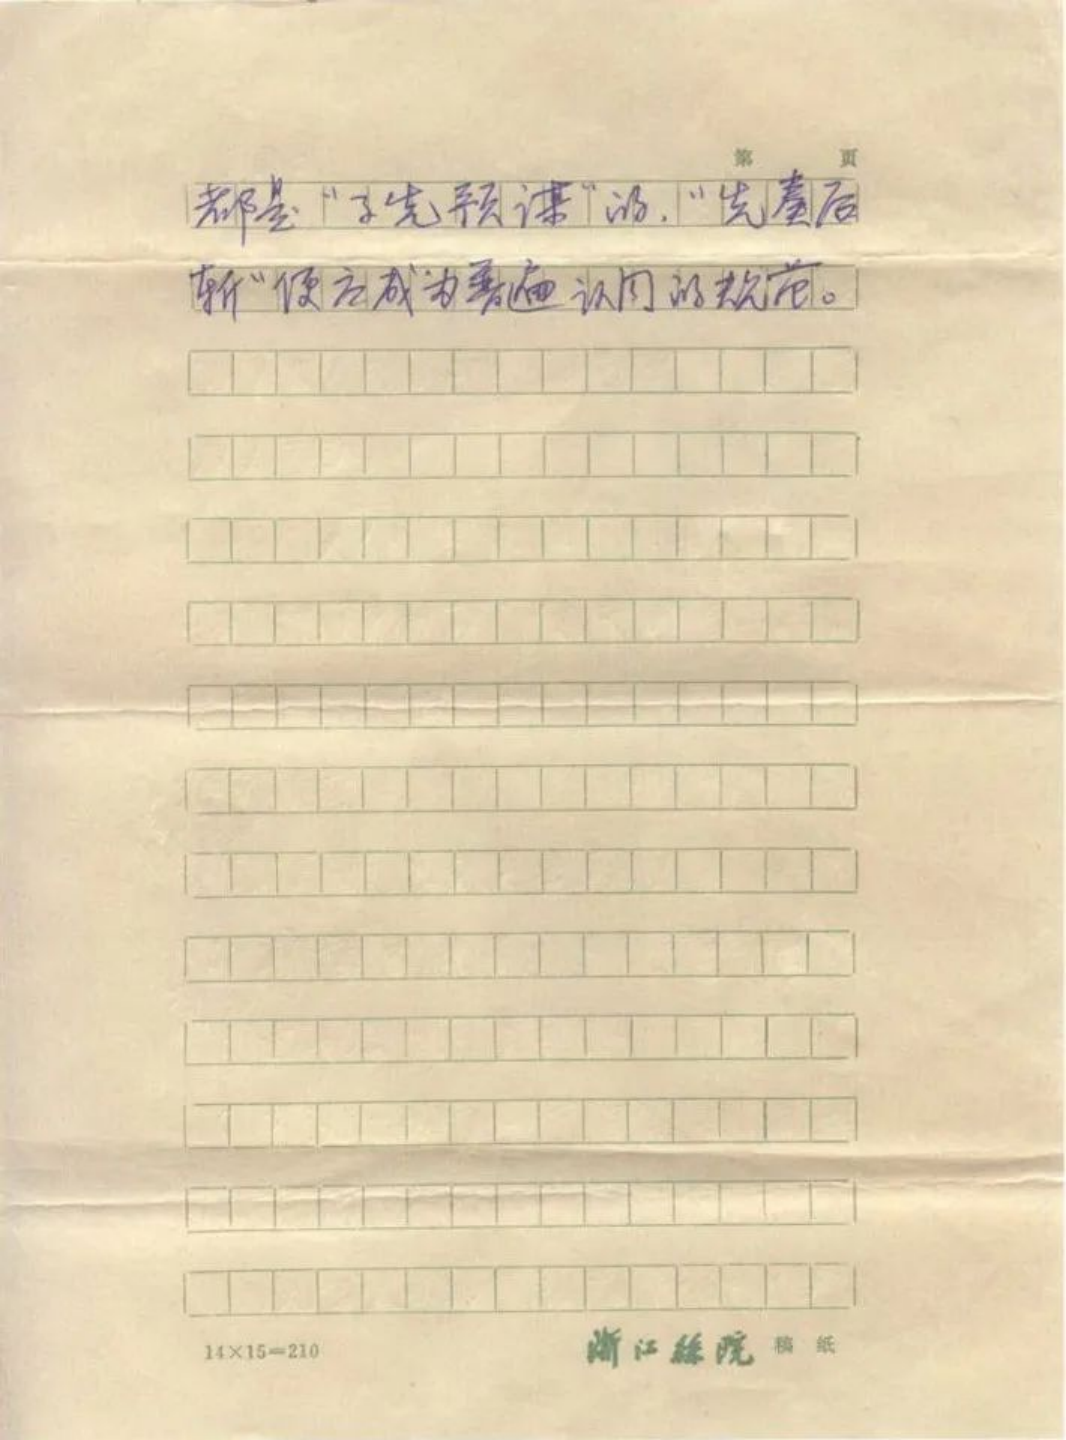 第 页
都是“事先预谋”的，“先奏后
斩”便应成为普遍认同的规范。
14×15=210 浙江絲院 稿纸